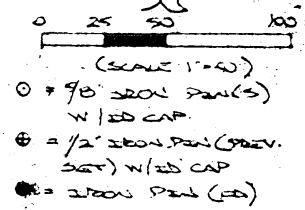 0 25 50 100
(SCALE 1"=50')
⊙ = 5/8" IRON PIN(S)
W/ID CAP.
⊕ = 1/2" IRON PIN (PREV.
SET) W/ID CAP
● = IRON PIN